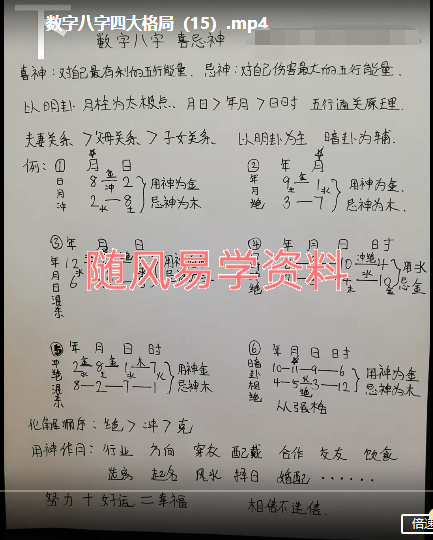 数字八字四大格局（15）.mp4
数字八字 喜忌神
喜神：对自己最有利的五行能量. 忌神：对自己伤害最大的五行能量.
以明卦 月柱为太极点. 月日>年月>日时 五行通关原理.
夫妻关系 > 父母关系 > 子女关系. 以明卦为主 暗卦为辅.
例：① 月 日
日月冲
8 金 2
冲
2 水 8
用神为金
忌神为木
② 年 月
年月绝
9 1
3 — 7
用神为金.
忌神为木.
③ 年 月 日
年月日混杂
12
6
④ 年 月 日 日时
10 冲绝 4
水
10
用水
忌金
随风易学资料
⑤ 年 月 日 时
冲绝混杂
2 金 8 金 1 木 7
8 — 2 — 7 — 1
用神金
忌神木
⑥ 年 月 日 时
暗卦相绝
10 — 11 — 9 — 6
4 — 5 3 — 12
用神为金
忌神为木
从强格
化解顺序：绝 > 冲 > 克
用神作用：行业 方向 穿衣 配戴 合作 交友 饮食
起名 风水 择日 婚配 ······
努力 + 好运 = 幸福 相信不迷信.
倍速